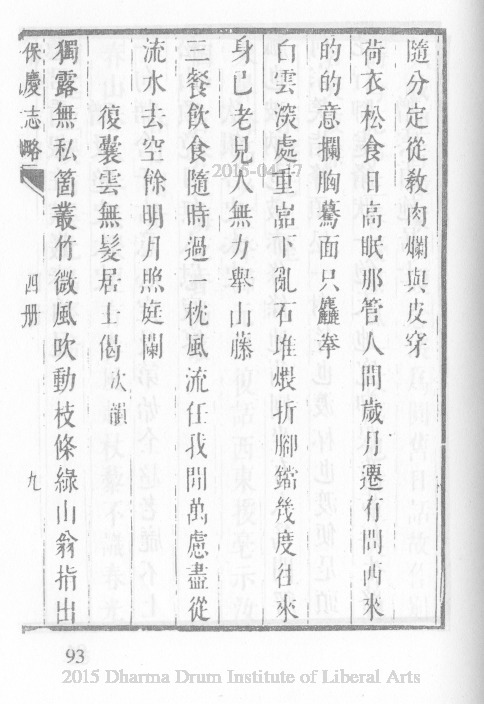 隨分定從敎肉爛與皮穿
荷衣松食日高眠那管人間歲月遷有問西來
的的意攔胸驀面只麤拳
白雲深處重嵓下亂石堆煨折腳鐺幾度往來
身已老見人無力舉山藤
三餐飲食隨時過一枕風流任我閒萬慮盡從
流水去空餘明月照庭闌
復囊雲無髮居士偈次韻
獨露無私箇叢竹微風吹動枝條綠山翁指出
保慶志略 四册 九
2015-04-17
93
2015 Dharma Drum Institute of Liberal Arts